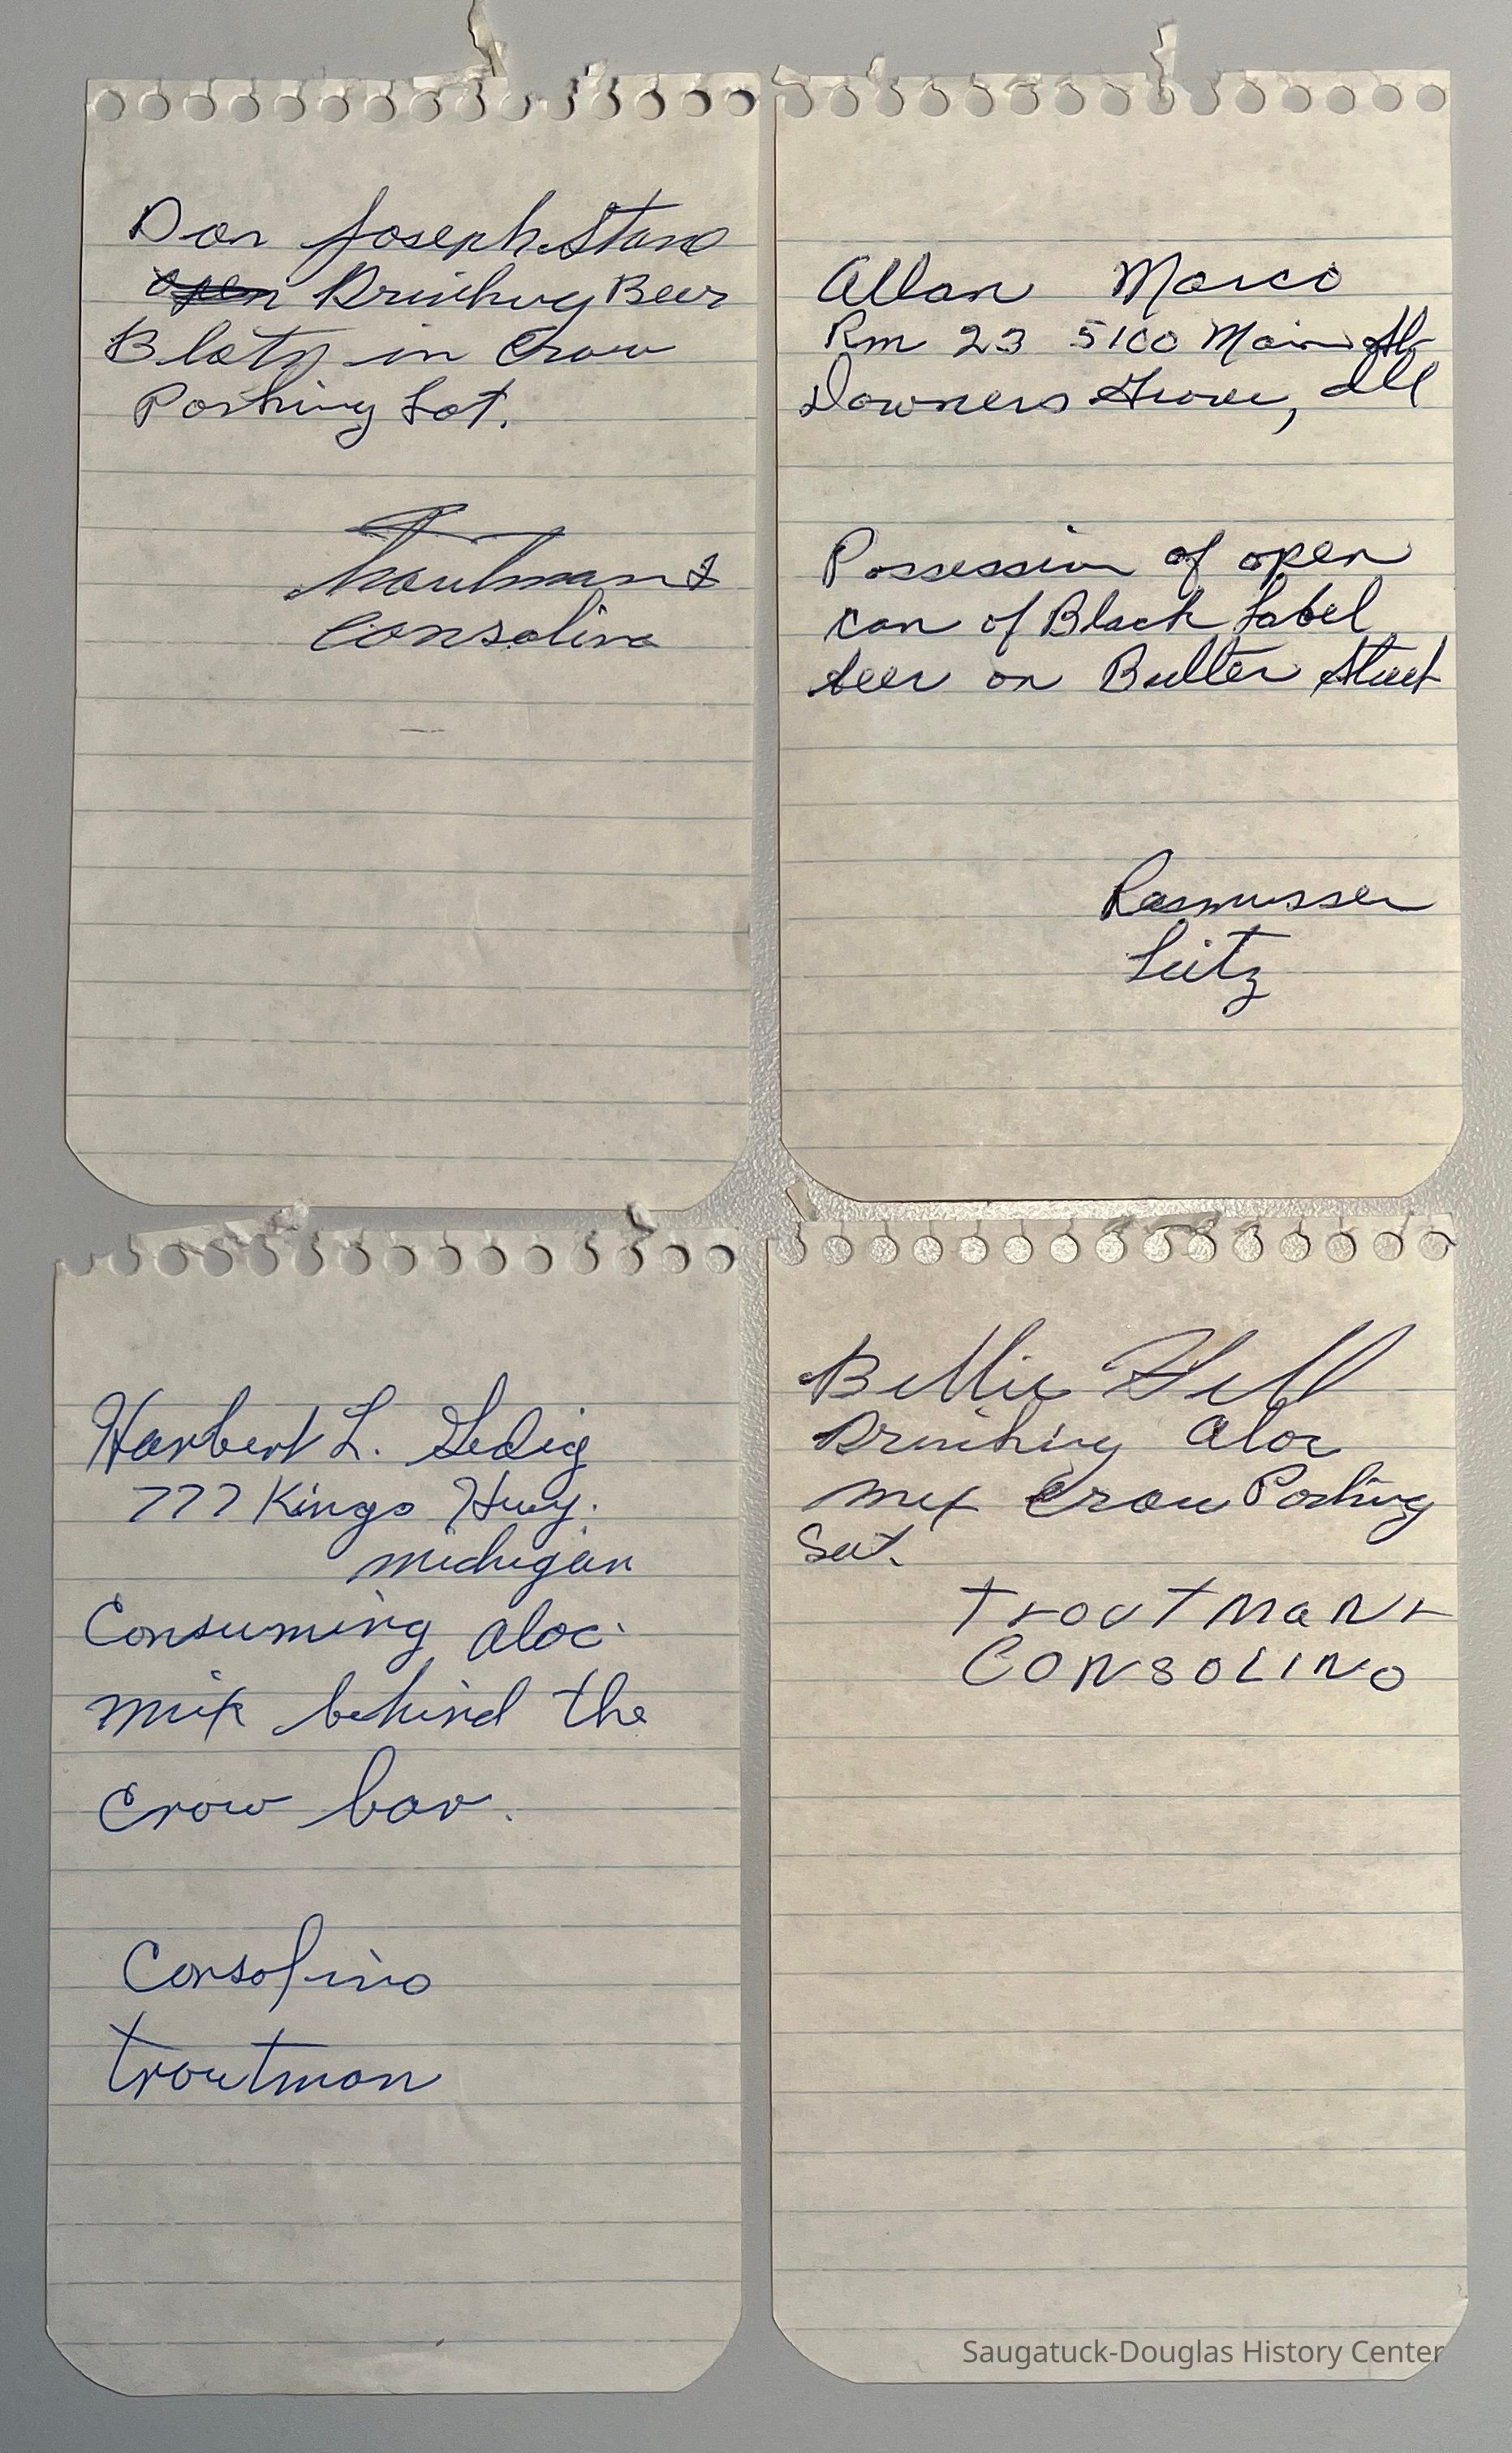 Don Joseph Stano
open Drinking Beer
Blatz in Crow
Parking Lot.
Troutman &
Consolino
Allan Marco
Rm 23 5100 Main St
Downers Grove, Ill
Possession of open
can of Black Label
beer on Butler Street
Rasmussen
Seitz
Herbert L. Gedig
777 Kings Hwy.
michigan
Consuming aloc.
mix behind the
Crow bar.
Consolino
troutman
Billie Hill
Drinking aloc
mix Crow Parking
Lot.
Troutman &
CONSOLINO
Saugatuck-Douglas History Center